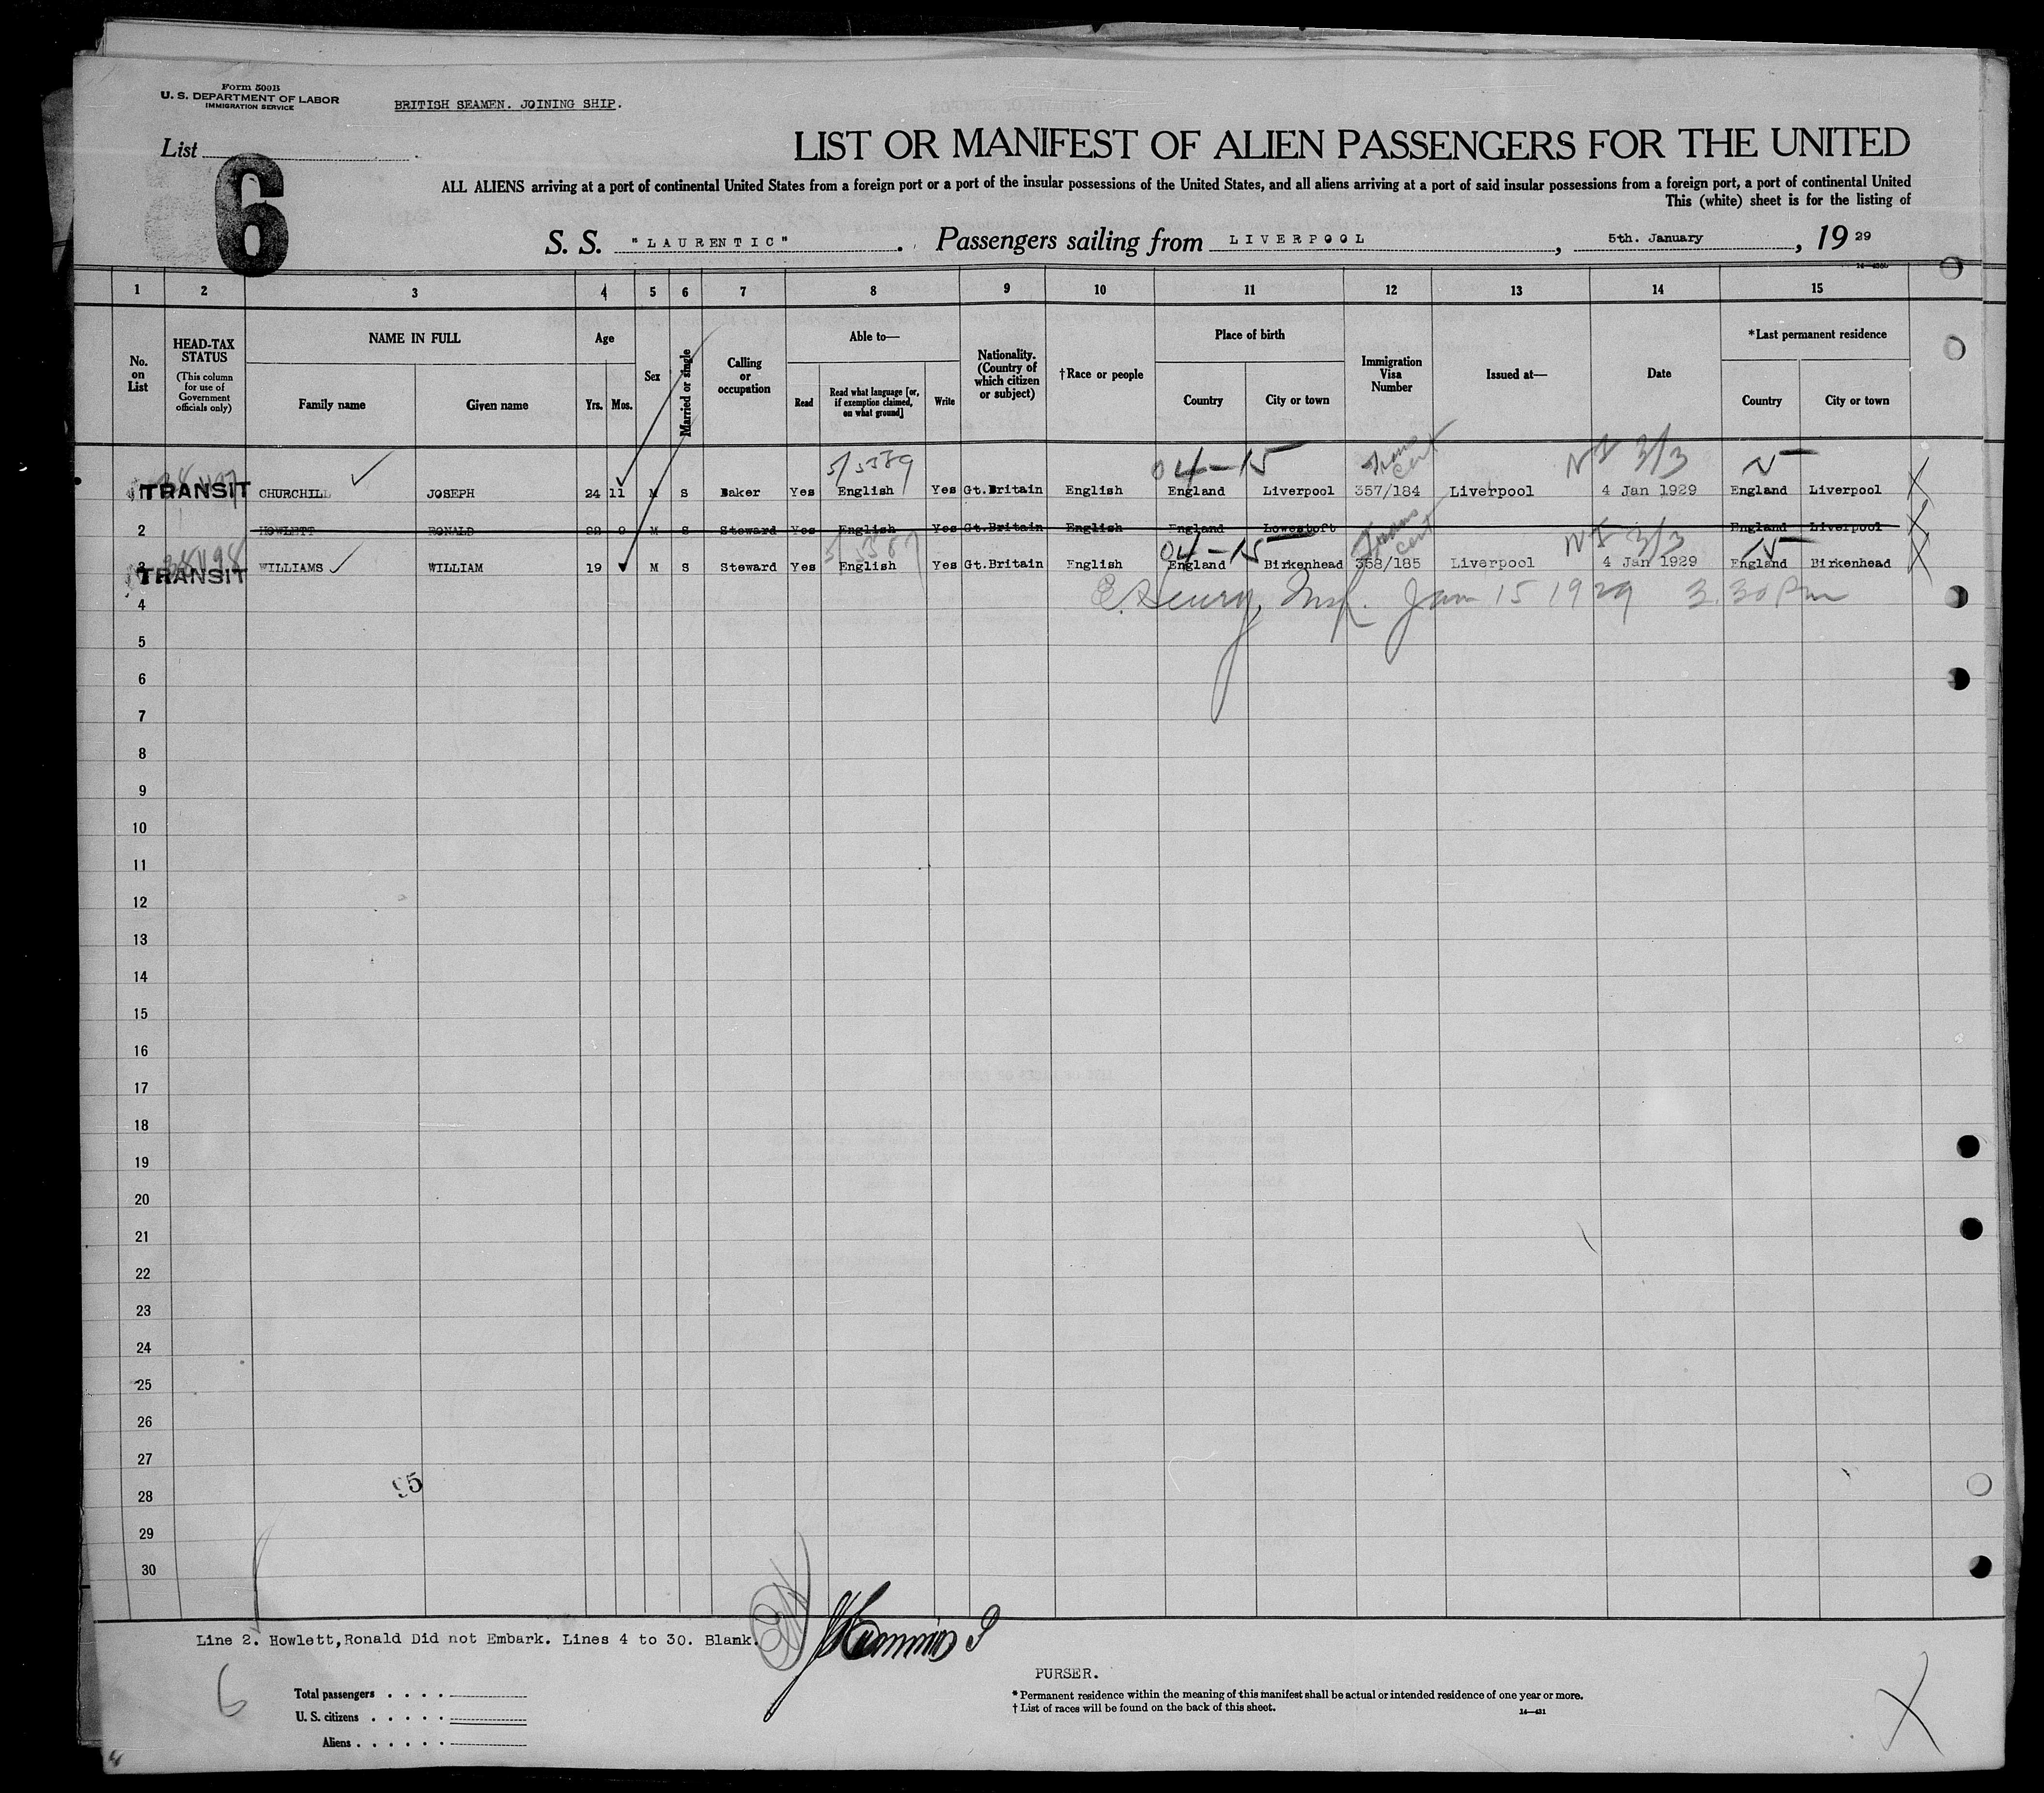 Form 500B
U. S. DEPARTMENT OF LABOR
IMMIGRATION SERVICE
BRITISH SEAMEN. JOINING SHIP.
List
6
LIST OR MANIFEST OF ALIEN PASSENGERS FOR THE UNITED
ALL ALIENS arriving at a port of continental United States from a foreign port or a port of the insular possessions of the United States, and all aliens arriving at a port of said insular possessions from a foreign port, a port of continental United
This (white) sheet is for the listing of
S. S. "LAURENTIC". Passengers sailing from LIVERPOOL, 5th. January, 19 29
1 2 3 4 5 6 7 8 9 10 11 12 13 14 15
No. on List
HEAD-TAX STATUS
(This column for use of Government officials only)
NAME IN FULL
Family name
Given name
Age
Yrs.
Mos.
Sex
Married or single
Calling or occupation
Able to—
Read
Read what language [or, if exemption claimed, on what ground]
Write
Nationality. (Country of which citizen or subject)
†Race or people
Place of birth
Country
City or town
Immigration Visa Number
Issued at—
Date
*Last permanent residence
Country
City or town
5/5589 04-15 Trans cert 3/3
TRANSIT CHURCHILL JOSEPH 24 11 M S Baker Yes English Yes Gt.Britain English England Liverpool 357/184 Liverpool 4 Jan 1929 England Liverpool
2 HOWLETT RONALD 22 9 M S Steward Yes English Yes Gt.Britain English England Lowestoft England Liverpool
04-15 Trans cert 3/3
3 TRANSIT WILLIAMS WILLIAM 19 M S Steward Yes English Yes Gt.Britain English England Birkenhead 358/185 Liverpool 4 Jan 1929 England Birkenhead
E. Henry, Insp. Jan 15 1929 3.30 Pm
4
5
6
7
8
9
10
11
12
13
14
15
16
17
18
19
20
21
22
23
24
25
26
27
95
28
29
30
Line 2. Howlett,Ronald Did not Embark. Lines 4 to 30. Blank.
PURSER.
6
Total passengers
U. S. citizens
Aliens
* Permanent residence within the meaning of this manifest shall be actual or intended residence of one year or more.
† List of races will be found on the back of this sheet.
14—431